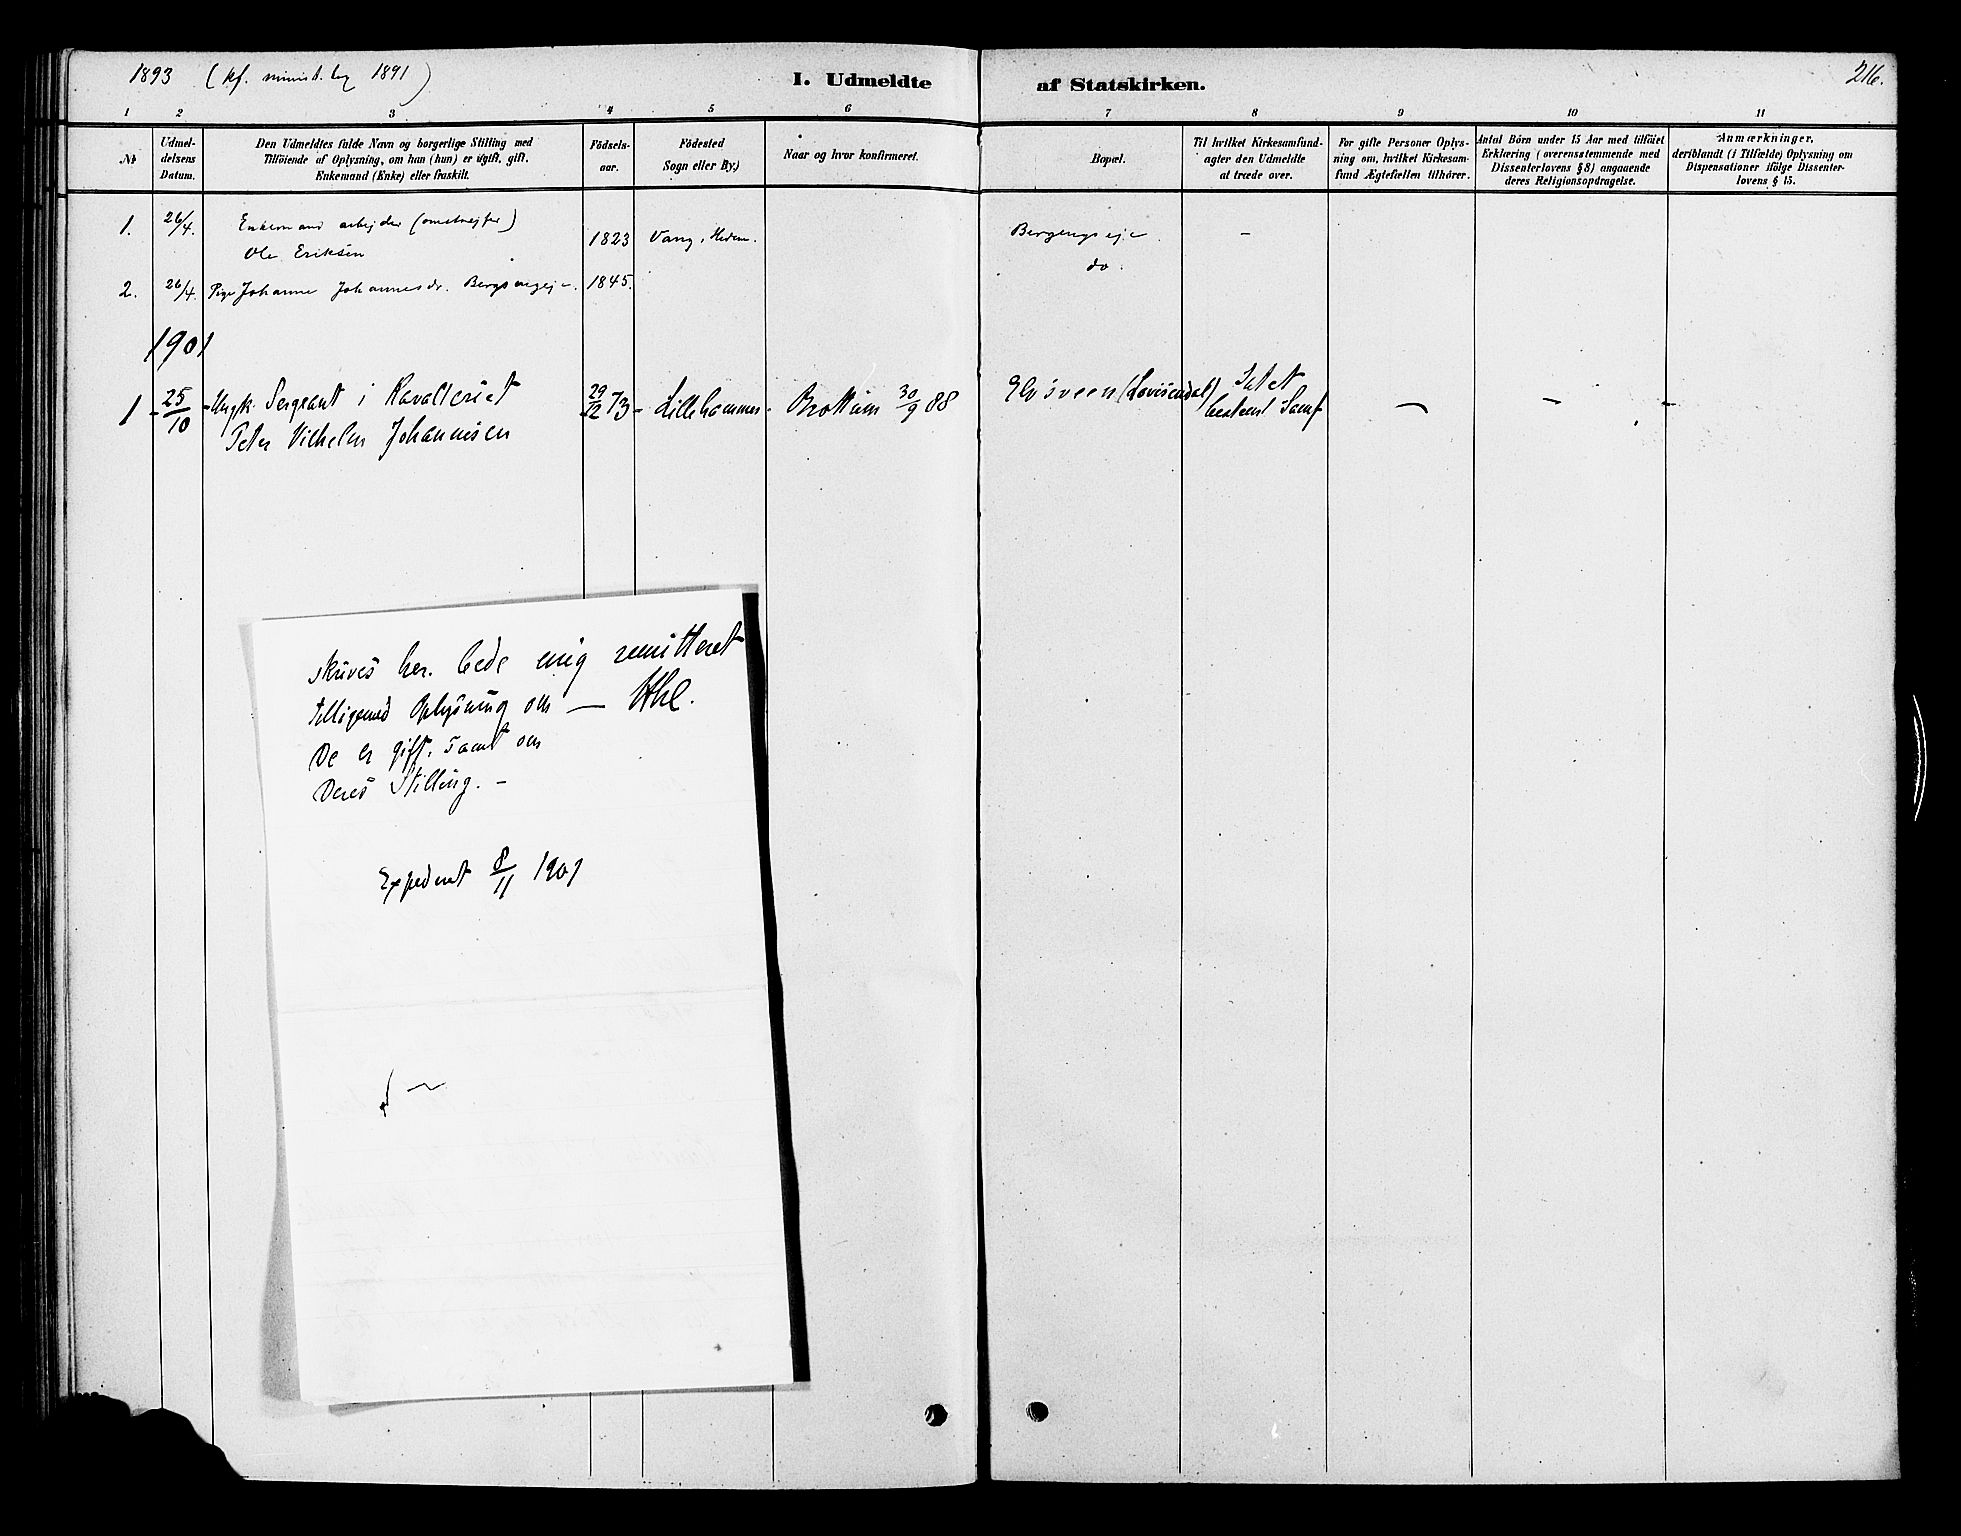 1893 (kf. minist. bog 1891)
I. Udmeldte af Statskirken.
216.
1 2 3 4 5 6 7 8 9 10 11
№
Udmel-
delsens
Datum.
Den Udmeldtes fulde Navn og borgerlige Stilling med
Tilføiende af Oplysning, om han (hun) er ugift, gift.
Enkemand (Enke) eller fraskilt.
Födsels-
aar.
Födested
Sogn eller By.)
Naar og hvor konfirmeret.
Bopæl.
Til hvilket Kirkesamfund-
agter den Udmeldte
at træde over.
For gifte Personer Oplys-
ning om, hvilket Kirkesam-
fund Ægtefællen tilhører.
Antal Börn under 15 Aar med tilföiet
Erklæring (overensstemmende med
Dissenterlovens § 8) angaaende
deres Religionsopdragelse.
Anmærkninger,
deriblandt (i Tilfælde) Oplysning om
Dispensationer ifölge Dissenter-
lovens § 15.
1. 26/4. Enkemand arbejder (omstrejfer)
Ole Eriksen 1823 Vang, Hedem. Bergengseje. -
do.
2. 26/4. Pige Johanne Johannesdr. Bergsengeje. 1845.
1901
1 - 25/10 - Ungk. Sergeant i Kavalleriet 29/12 73 - Lillehammer - Brøttum 30/9 88 Elvsveen (Lovisendal) Intet
Peter Vilhelm Johannesen bestemt Samf. - - -
skrives her. bedes mig remitteret
tilligemed Oplysning om — Hhl.
De er gift, samt om
Deres Stilling. -
Expederet 8/11 1901